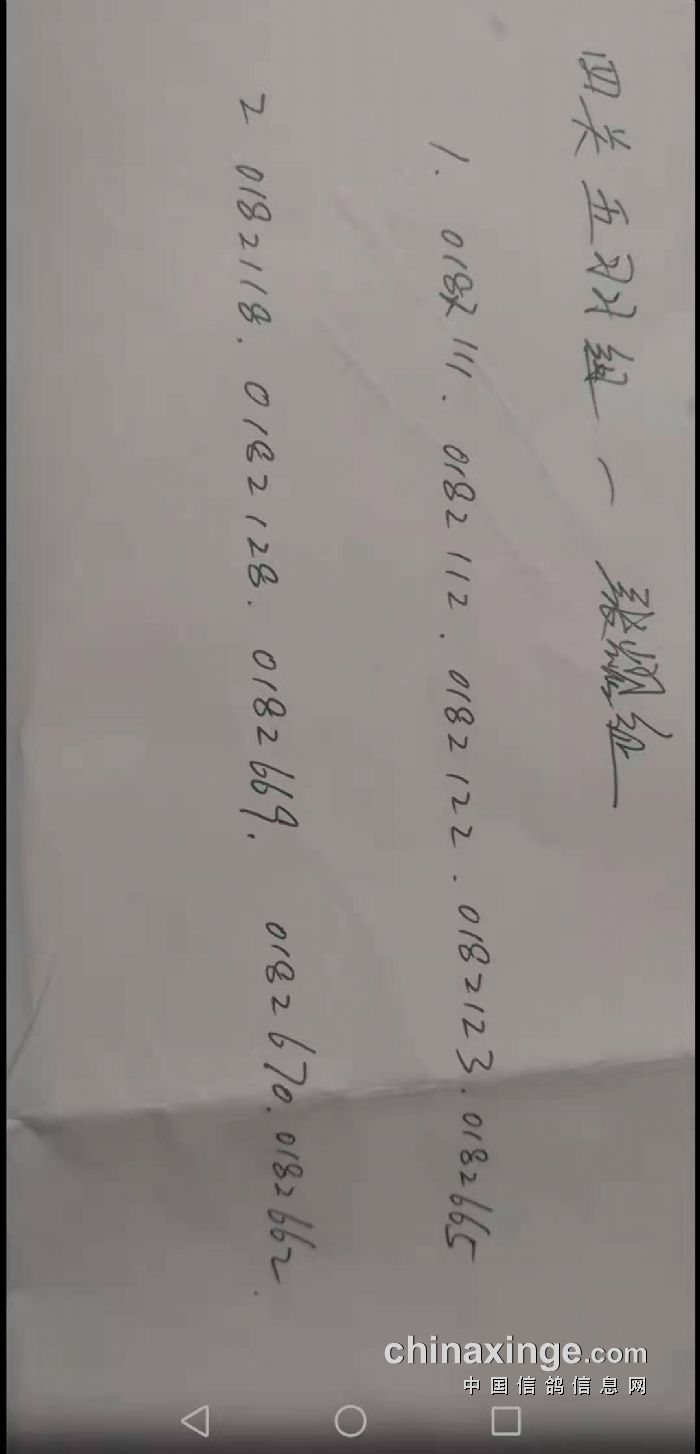 四关五羽组 一
1. 0182111. 0182112. 0182122. 0182123. 0182665
2 0182118. 0182128. 0182669. 0182670. 0182662.
chinaxinge.com
中国信鸽信息网